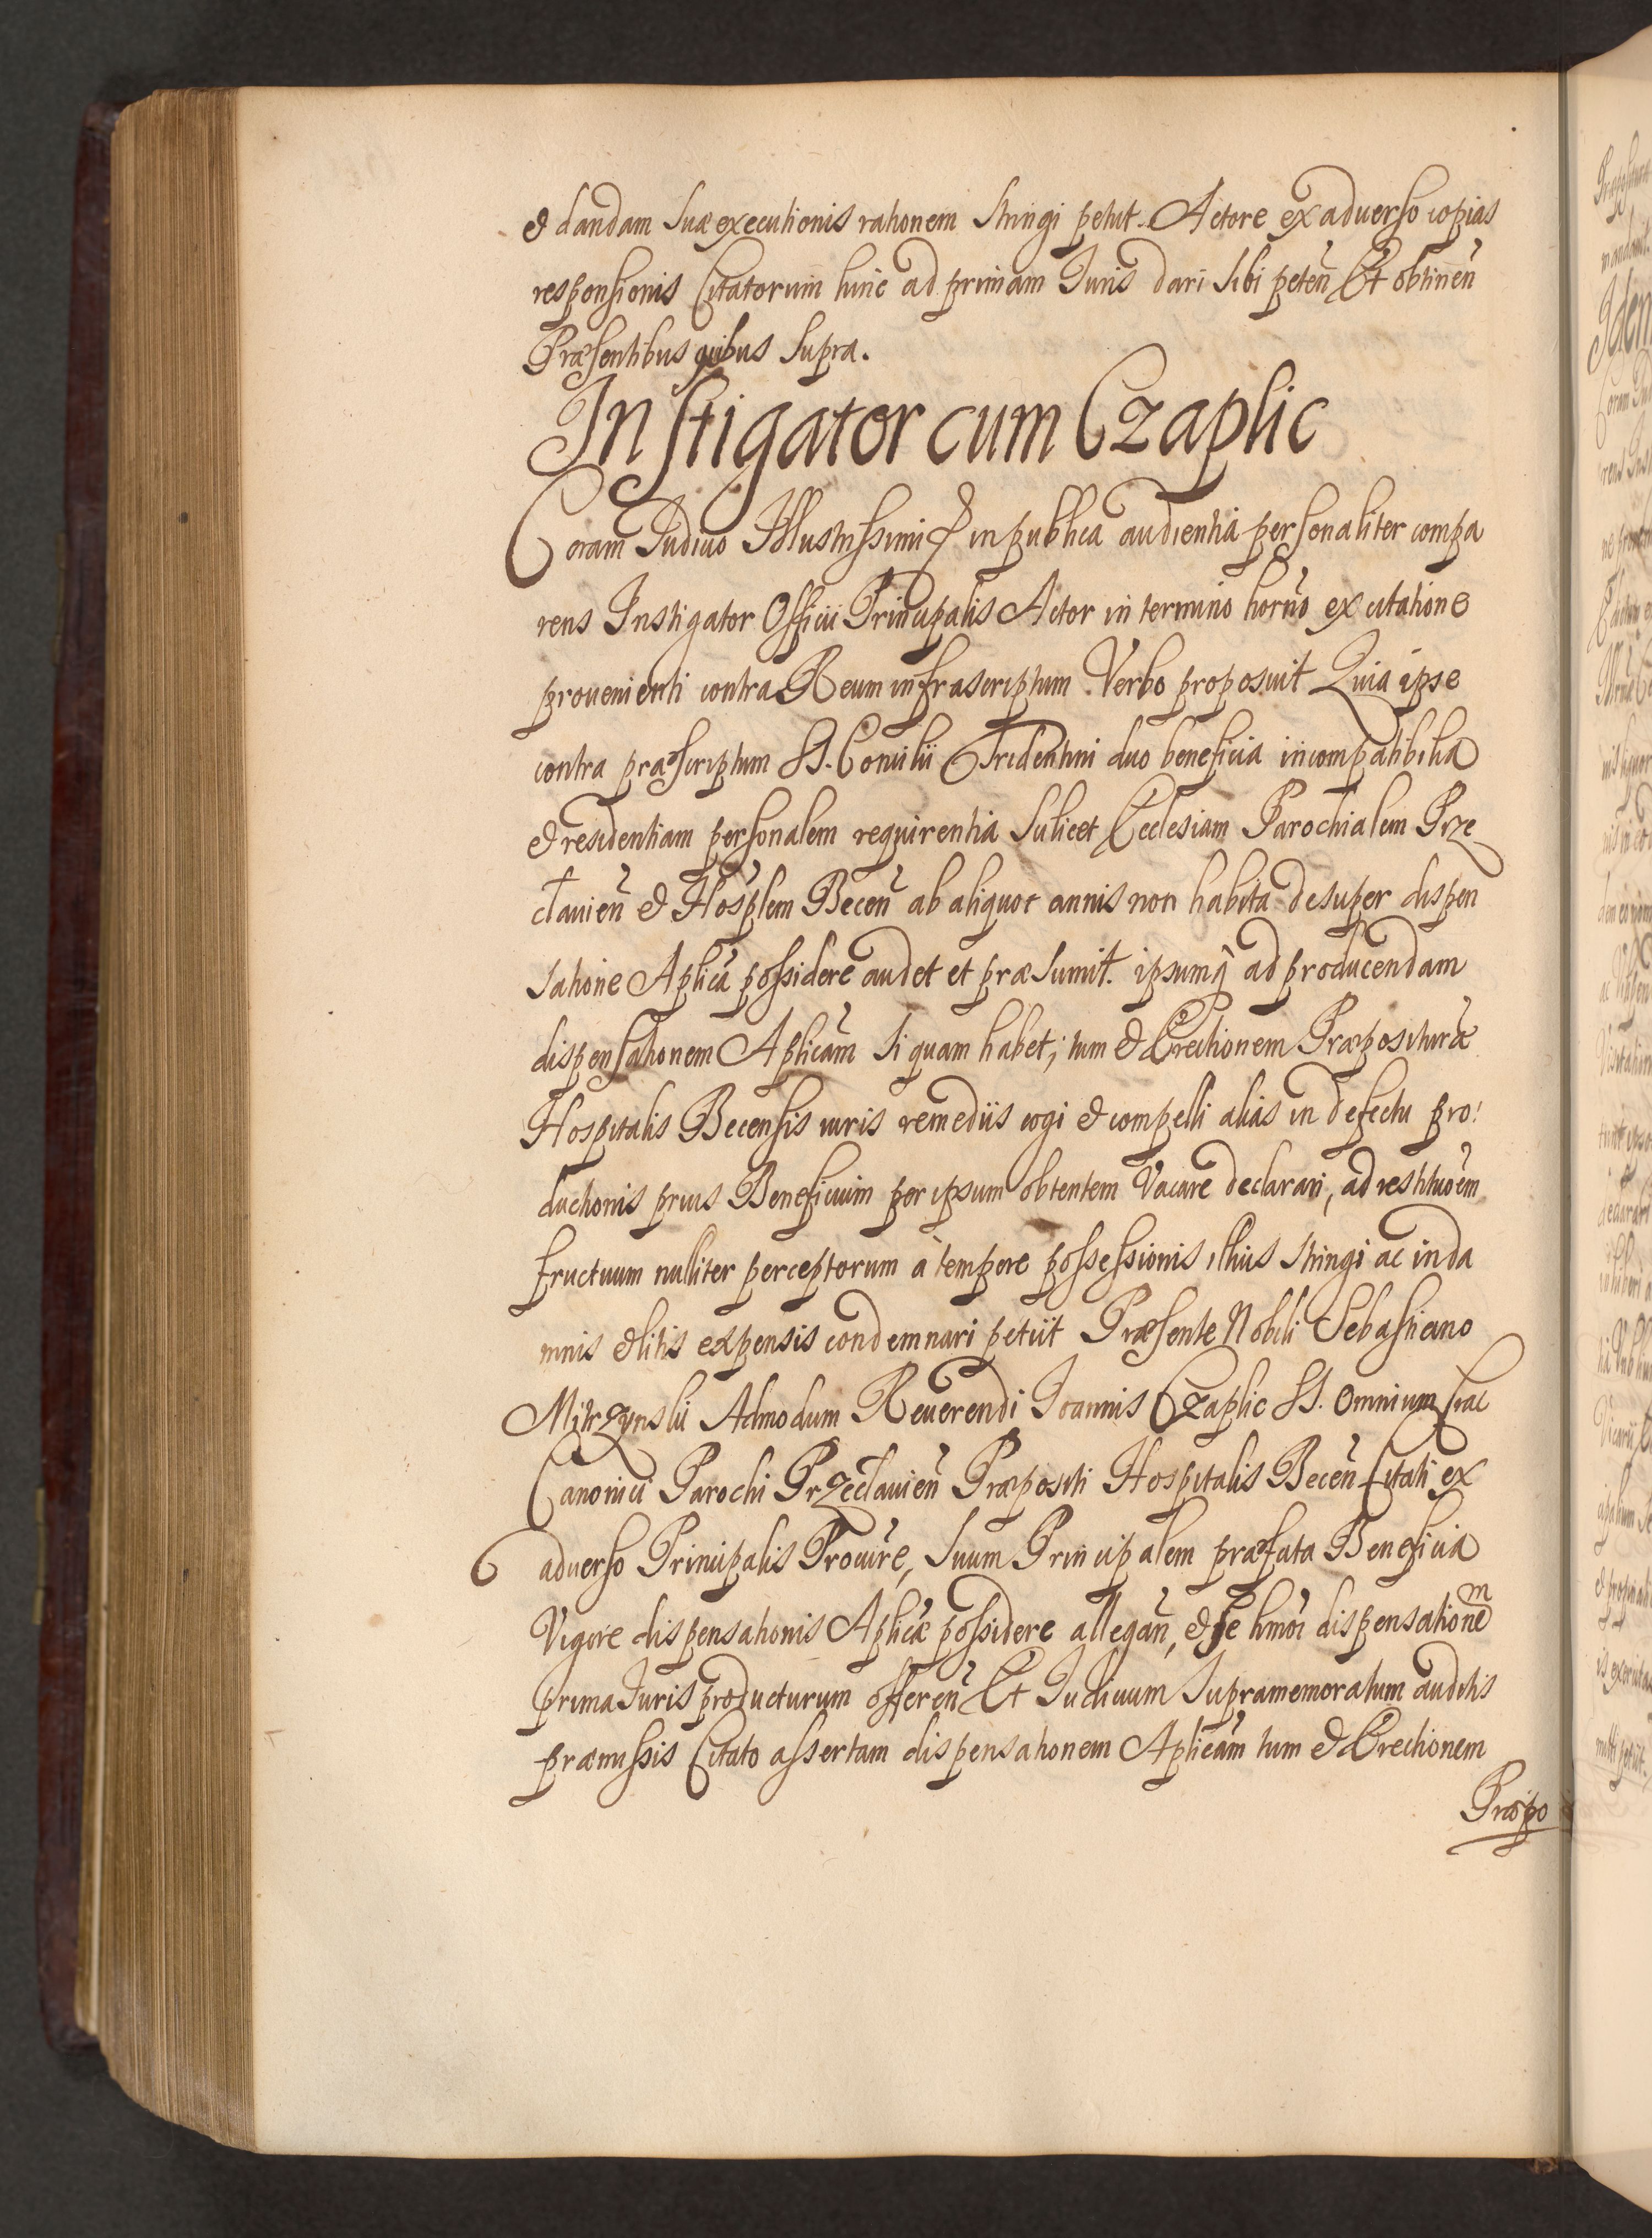 & dandam suae executionis rationem stringi petiit. Actore ex aduerso copias
responsionis Citatorum hinc ad primam Iuris dari sibi peteñ Et obtineñ
Præsentibus quibus supra.
Instigator cum Czaplic
Coram Iudicio Illustrissimi & in publica audientia personaliter compa
rens Instigator Officii Principalis Actor in termino horño ex citatione
prouenienti contra Reum infrascriptum Verbo proposuit Quia ipse
contra præscriptum SS. Concilii Tridentini duo beneficia incompatibilia
& residentiam personalem requirentia scilicet Ecclesiam Parochialem Prze
cłauieñ & Hosplem Beceñ ab aliquot annis non habita desuper dispen
satione Aplica possidere audet et præsumit. ipsumq ad producendam
dispensationem Aplicam si quam habet; tum & Erectionem Præposituræ
Hospitalis Becensis iuris remediis cogi & compelli alias in defectu pro
ductionis prius Beneficium per ipsum obtentem Vacare declarari, ad restituõem
fructuum nulliter perceptorum à tempore possessionis illius stringi ac in da
mnis & litis expensis condemnari petiit Præsente Nobili Sebastiano
Admodum Reuerendi Ioannis Czaplic SS. Omnium Crac
Canonici Parochi Przecłauieñ Præpositi Hospitalis Beceñ Citati ex
aduerso Principalis Procure, suum Principalem præfata Beneficia
Vigore dispensationis Aplicæ possidere allegañ, & se hmoi dispensationem
prima Iuris producturum offereñ Et Iudicium supramemoratum auditis
præmissis Citato assertam dispensationem Aplicam tum & Erectionem
Præpo